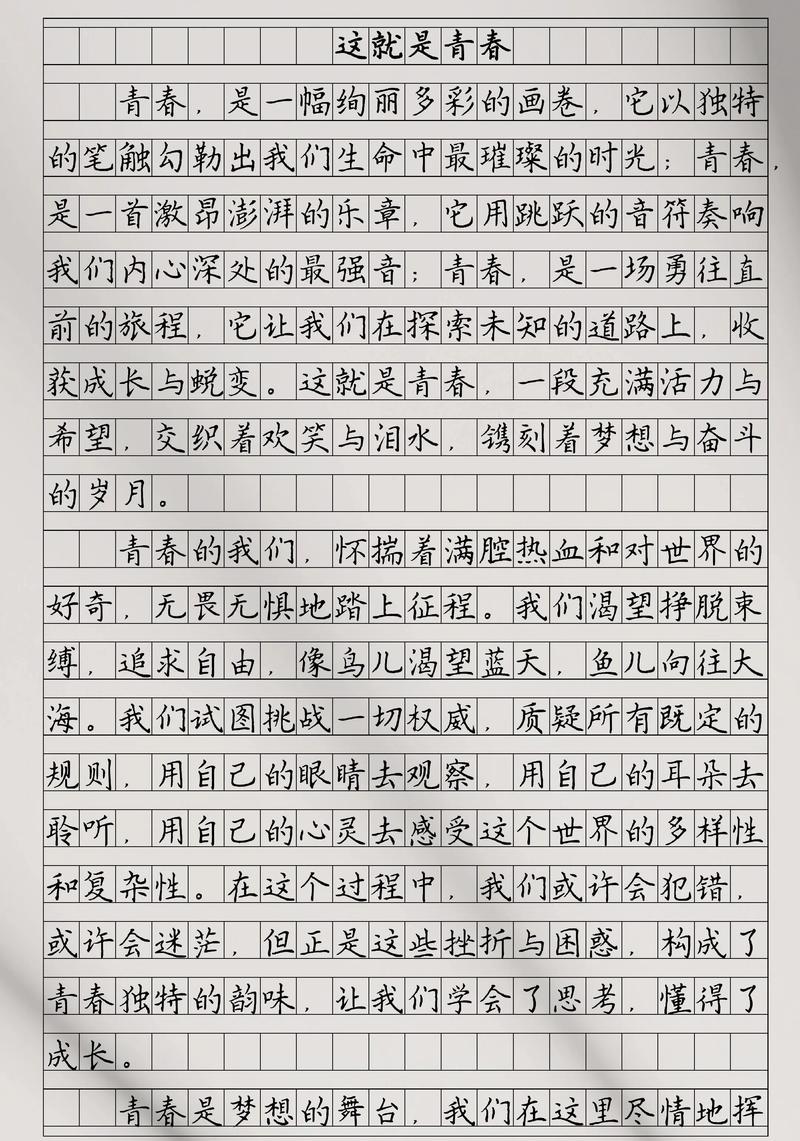 这就是青春
青春，是一幅绚丽多彩的画卷，它以独特
的笔触勾勒出我们生命中最璀璨的时光；青春，
是一首激昂澎湃的乐章，它用跳跃的音符奏响
我们内心深处的最强音；青春，是一场勇往直
前的旅程，它让我们在探索未知的道路上，收
获成长与蜕变。这就是青春，一段充满活力与
希望，交织着欢笑与泪水，镌刻着梦想与奋斗
的岁月。
青春的我们，怀揣着满腔热血和对世界的
好奇，无畏无惧地踏上征程。我们渴望挣脱束
缚，追求自由，像鸟儿渴望蓝天，鱼儿向往大
海。我们试图挑战一切权威，质疑所有既定的
规则，用自己的眼睛去观察，用自己的耳朵去
聆听，用自己的心灵去感受这个世界的多样性
和复杂性。在这个过程中，我们或许会犯错，
或许会迷茫，但正是这些挫折与困惑，构成了
青春独特的韵味，让我们学会了思考，懂得了
成长。
青春是梦想的舞台，我们在这里尽情地挥